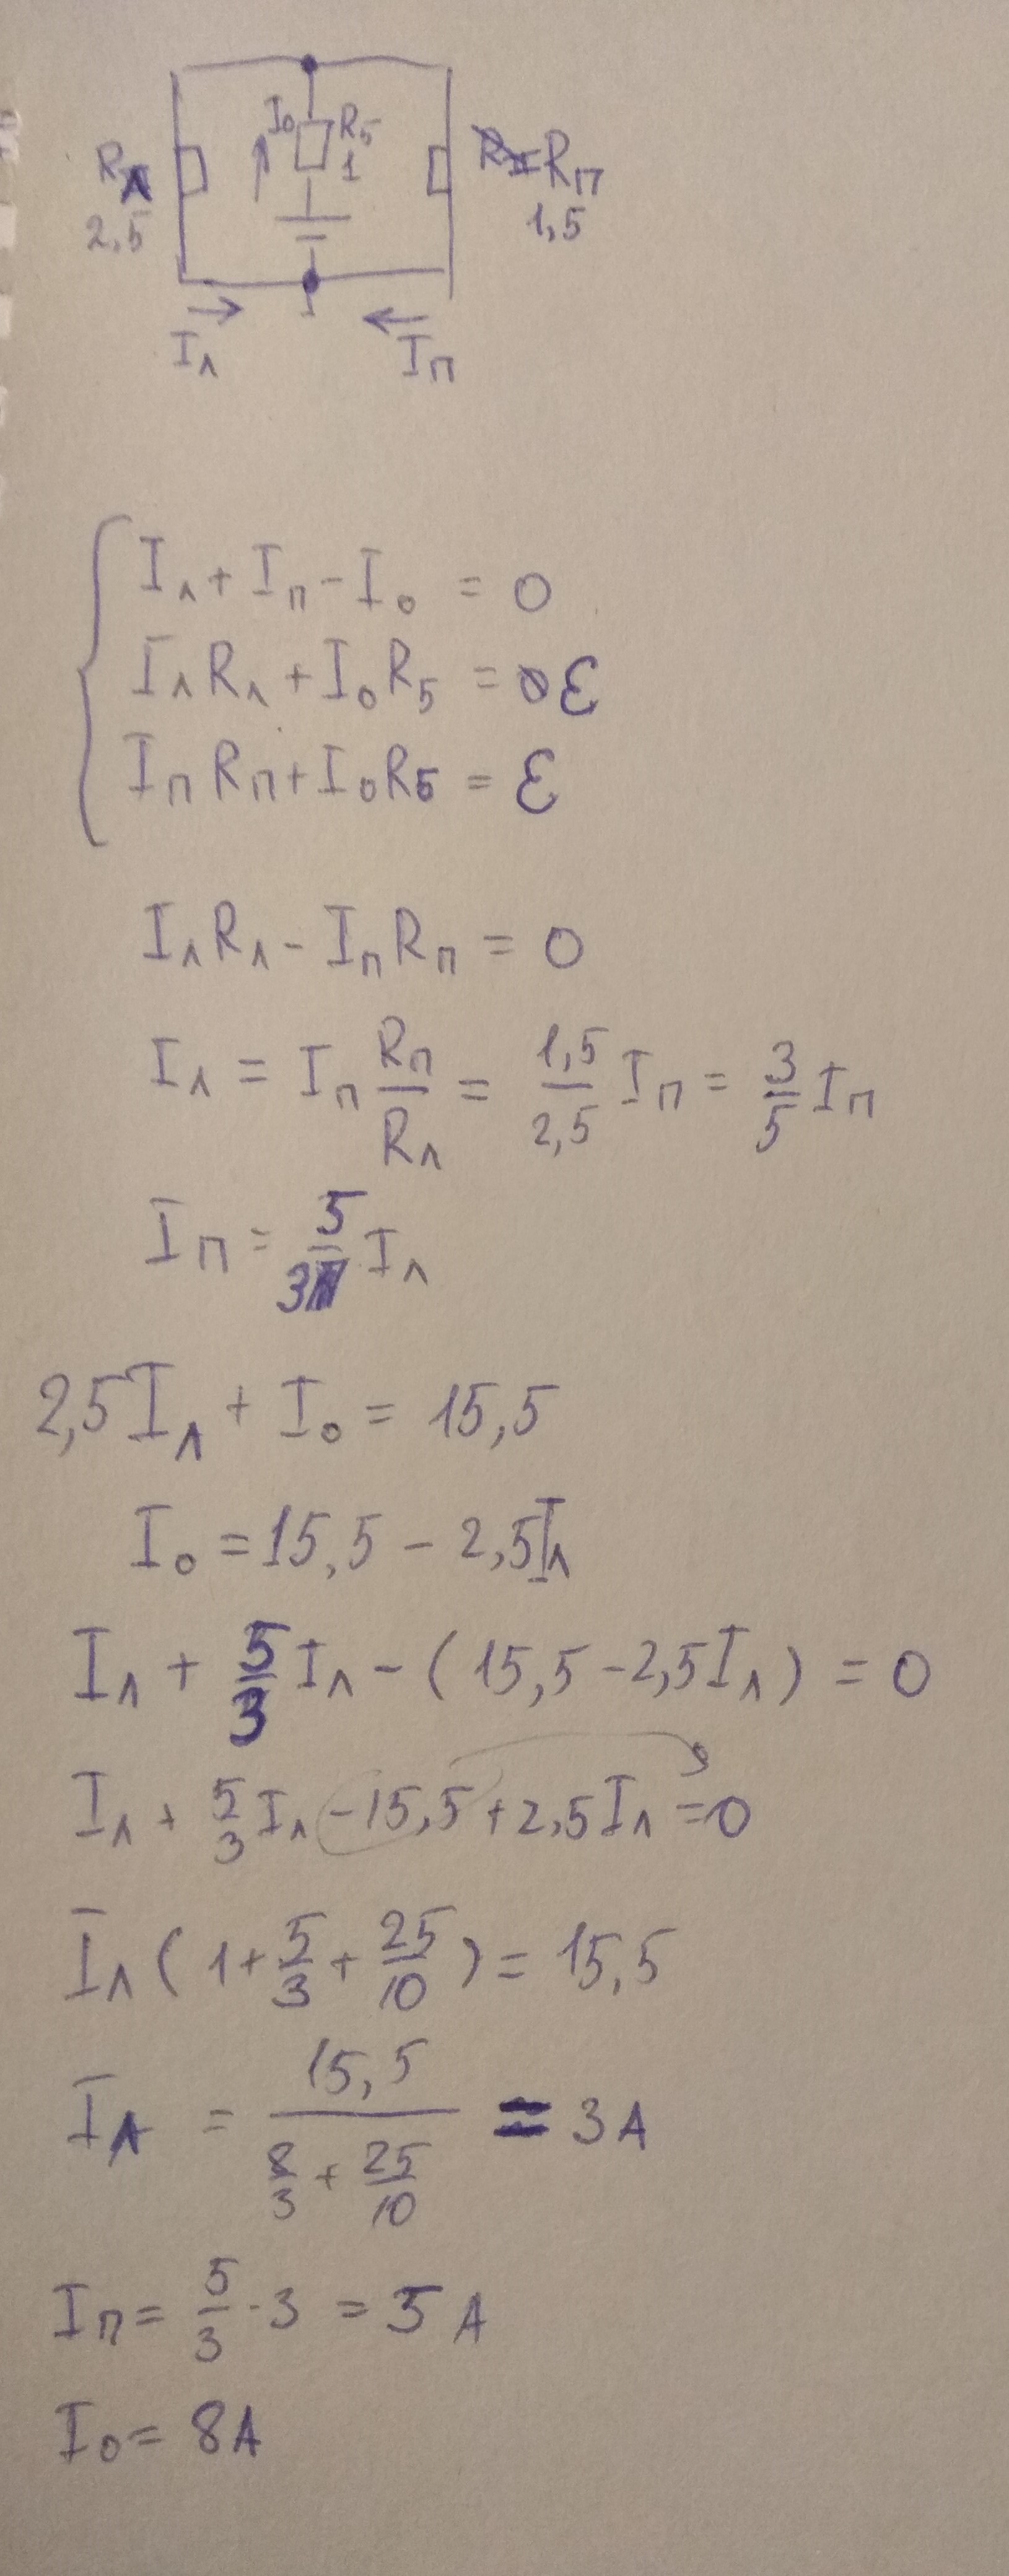 I₀ R₅
Rл 1 Rп
2,5 1,5
Iл Iп
Iл + Iп - I₀ = 0
IлRл + I₀R₅ = ε
IпRп + I₀R₅ = ε
IлRл - IпRп = 0
Iл = Iп Rп/Rл = 1,5/2,5 Iп = 3/5 Iп
Iп = 5/3 Iл
2,5Iл + I₀ = 15,5
I₀ = 15,5 - 2,5Iл
Iл + 5/3 Iл - (15,5 - 2,5Iл) = 0
Iл + 5/3 Iл - 15,5 + 2,5Iл = 0
Iл (1 + 5/3 + 25/10) = 15,5
Iл = 15,5/(8/3 + 25/10) = 3А
Iп = 5/3 · 3 = 5 А
I₀ = 8А